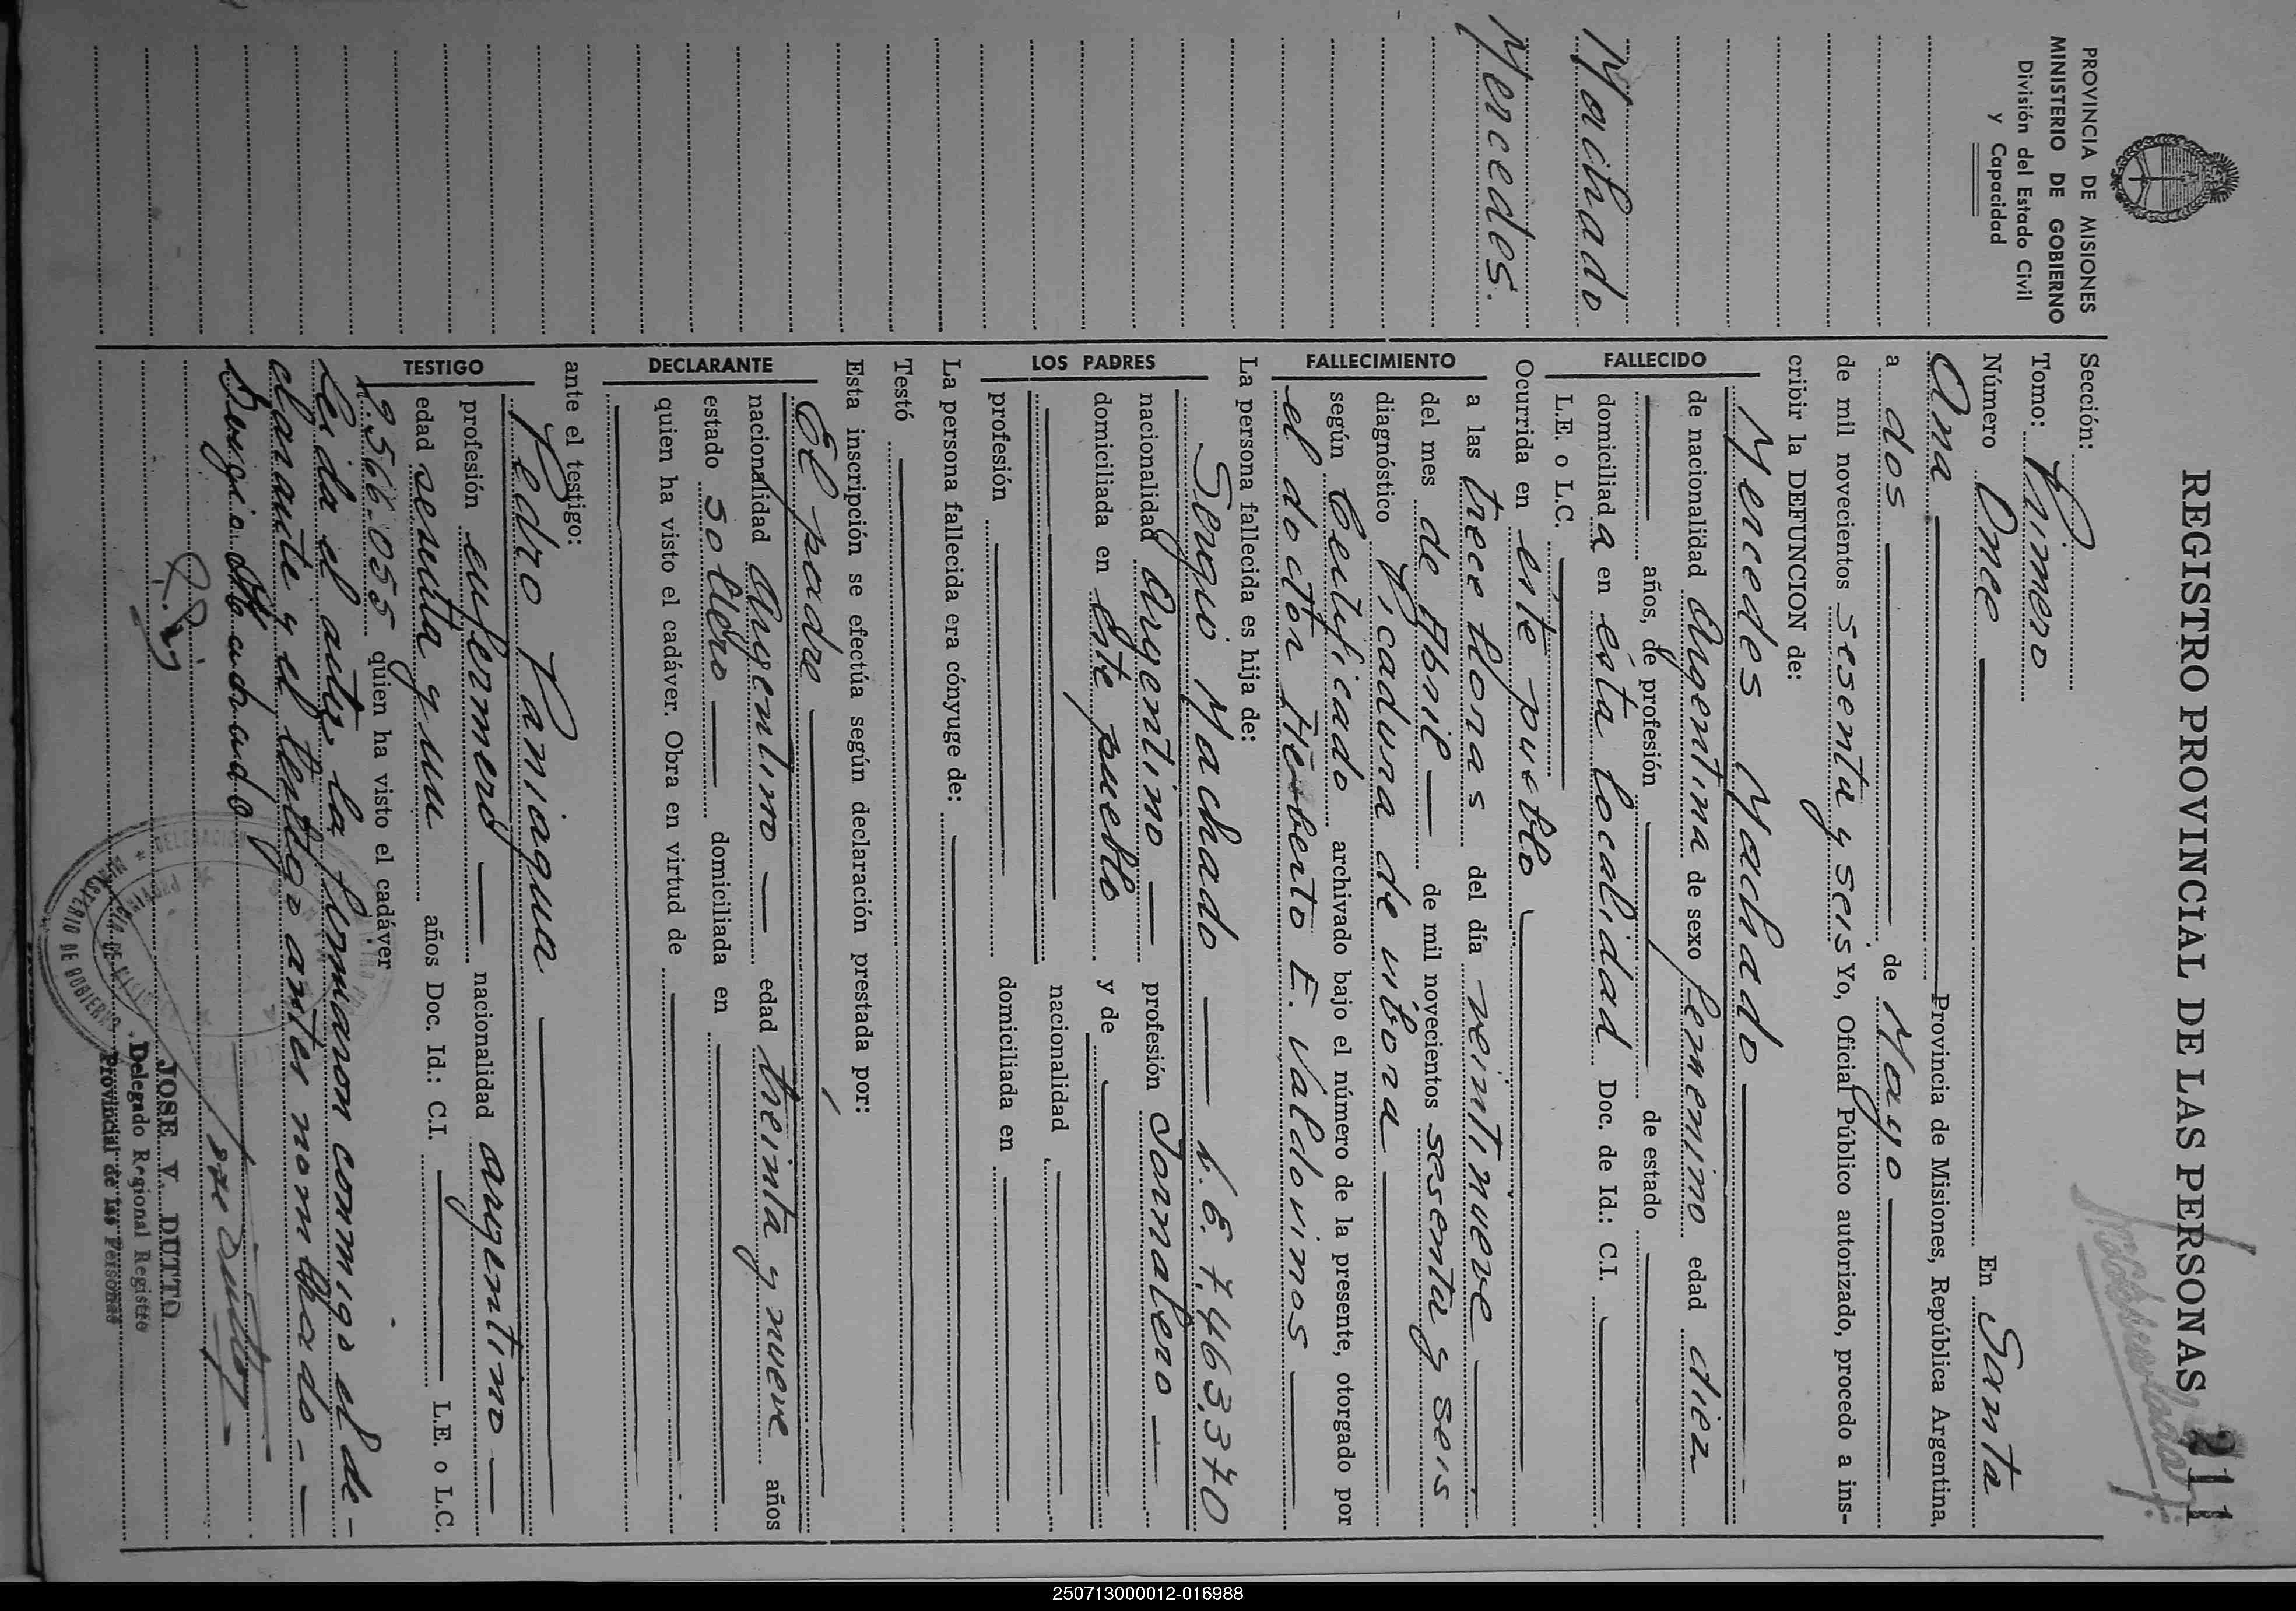 REGISTRO PROVINCIAL DE LAS PERSONAS
211
PROVINCIA DE MISIONES
MINISTERIO DE GOBIERNO
División del Estado Civil
y Capacidad
Machado
Mercedes.
Sección:
Tomo: Primero
Número Once En Santa
Ana Provincia de Misiones, República Argentina,
a dos de Mayo
de mil novecientos sesenta y seis Yo, Oficial Público autorizado, procedo a ins-
cribir la DEFUNCION de:
FALLECIDO
Mercedes Machado
de nacionalidad Argentina de sexo femenino edad diez
años, de profesión de estado
domiciliada en ésta localidad Doc. de Id.: C.I.
L.E. o L.C.
Ocurrida en éste pueblo
FALLECIMIENTO
a las trece horas del día veintinueve
del mes de Abril de mil novecientos sesenta y seis
diagnóstico Picadura de víbora
según Certificado archivado bajo el número de la presente, otorgado por
el doctor Heriberto E. Valdovinos
La persona fallecida es hija de:
LOS PADRES
Sergio Machado L.E. 7,463,370
nacionalidad Argentino profesión Jornalero
domiciliada en éste pueblo y de
nacionalidad
profesión domiciliada en
La persona fallecida era cónyuge de:
Testó
Esta inscripción se efectúa según declaración prestada por:
DECLARANTE
El padre
nacionalidad Argentino edad treinta y nueve años
estado soltero domiciliada en
quien ha visto el cadáver. Obra en virtud de
ante el testigo:
TESTIGO
Pedro Paniagua
profesión enfermero nacionalidad argentino
edad sesenta y un años Doc. Id.: C.I. L.E. o L.C.
2.566.055 quien ha visto el cadáver
Leida el acta, la firmaron conmigo el de-
clarante y el testigo antes nombrado.-
Sergio Machado
JOSE V. DUTTO
Delegado Regional Registro
Provincial de las Personas
MINISTERIO DE GOBIERNO
250713000012-016988